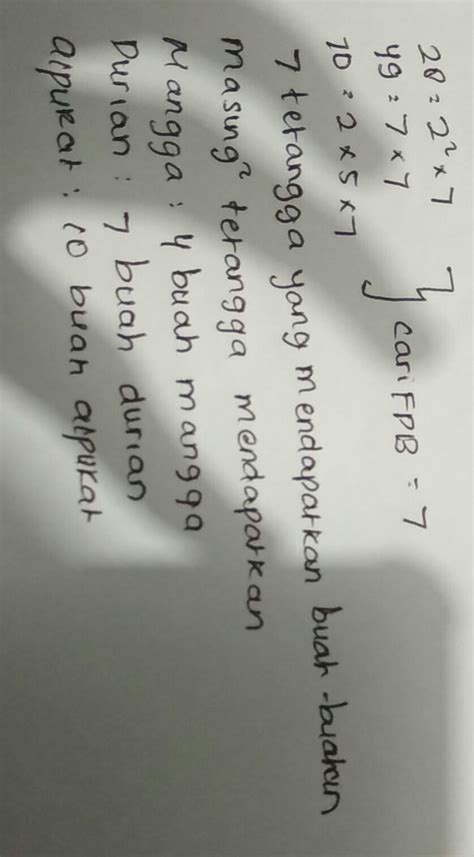 28 = 2² × 7
49 = 7 × 7 } cari FPB = 7
70 = 2 × 5 × 7
7 tetangga yang mendapatkan buah-buahan
masing² tetangga mendapatkan
Mangga : 4 buah mangga
Durian : 7 buah durian
alpukat : 10 buah alpukat